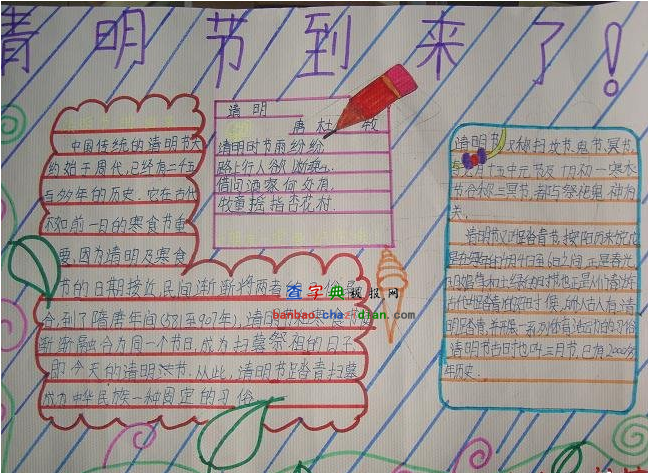 清明节到来了!
中国传统的清明节大
约始于周代,已经有二千五
百多年的历史.它在古代
不如前一日的寒食节重
要,因为清明及寒食
节的日期接近,民间渐渐将两者
合
到了隋唐年间(581至907年),清明节和寒食
渐渐融合为同一个节日,成为扫墓祭祖的日子
即今天的清明节.从此,清明节踏青扫墓
成为中华民族一种固定的习俗
清明
唐 杜 牧
清明时节雨纷纷,
路上行人欲断魂.
借问酒家何处有,
牧童摇指杏花村.
清明节又称扫坟节、鬼节、冥节,
月十五中元节及十月初一寒衣
节合称三冥节,都与祭祀鬼神有
关.
清明节又叫踏青节,按阳历来说,
是在每年的4月4日至6日之间,正是春光
明媚草木吐绿的时节,也正是人们春游
古代叫踏青的好时候,所以古人有清
明踏青,并开展一系列体育活动的习俗
清明节古时也叫三月节,已有2000多
年历史.
查字典板报网
banbao.chazidian.com